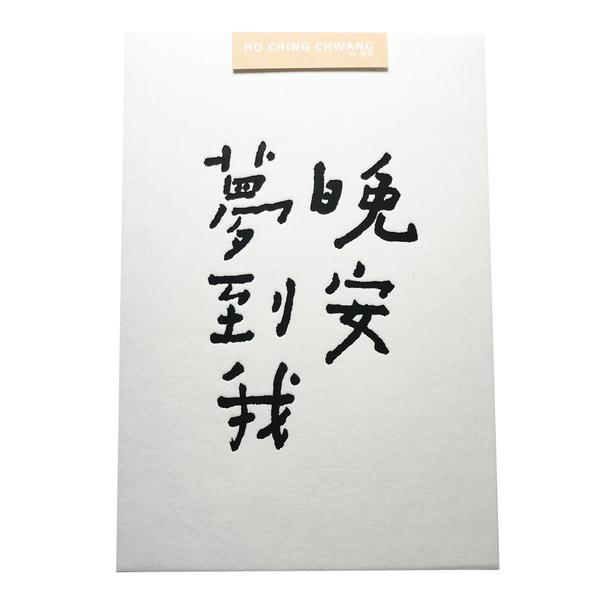 HO CHING CHWANG
晚安
夢到我